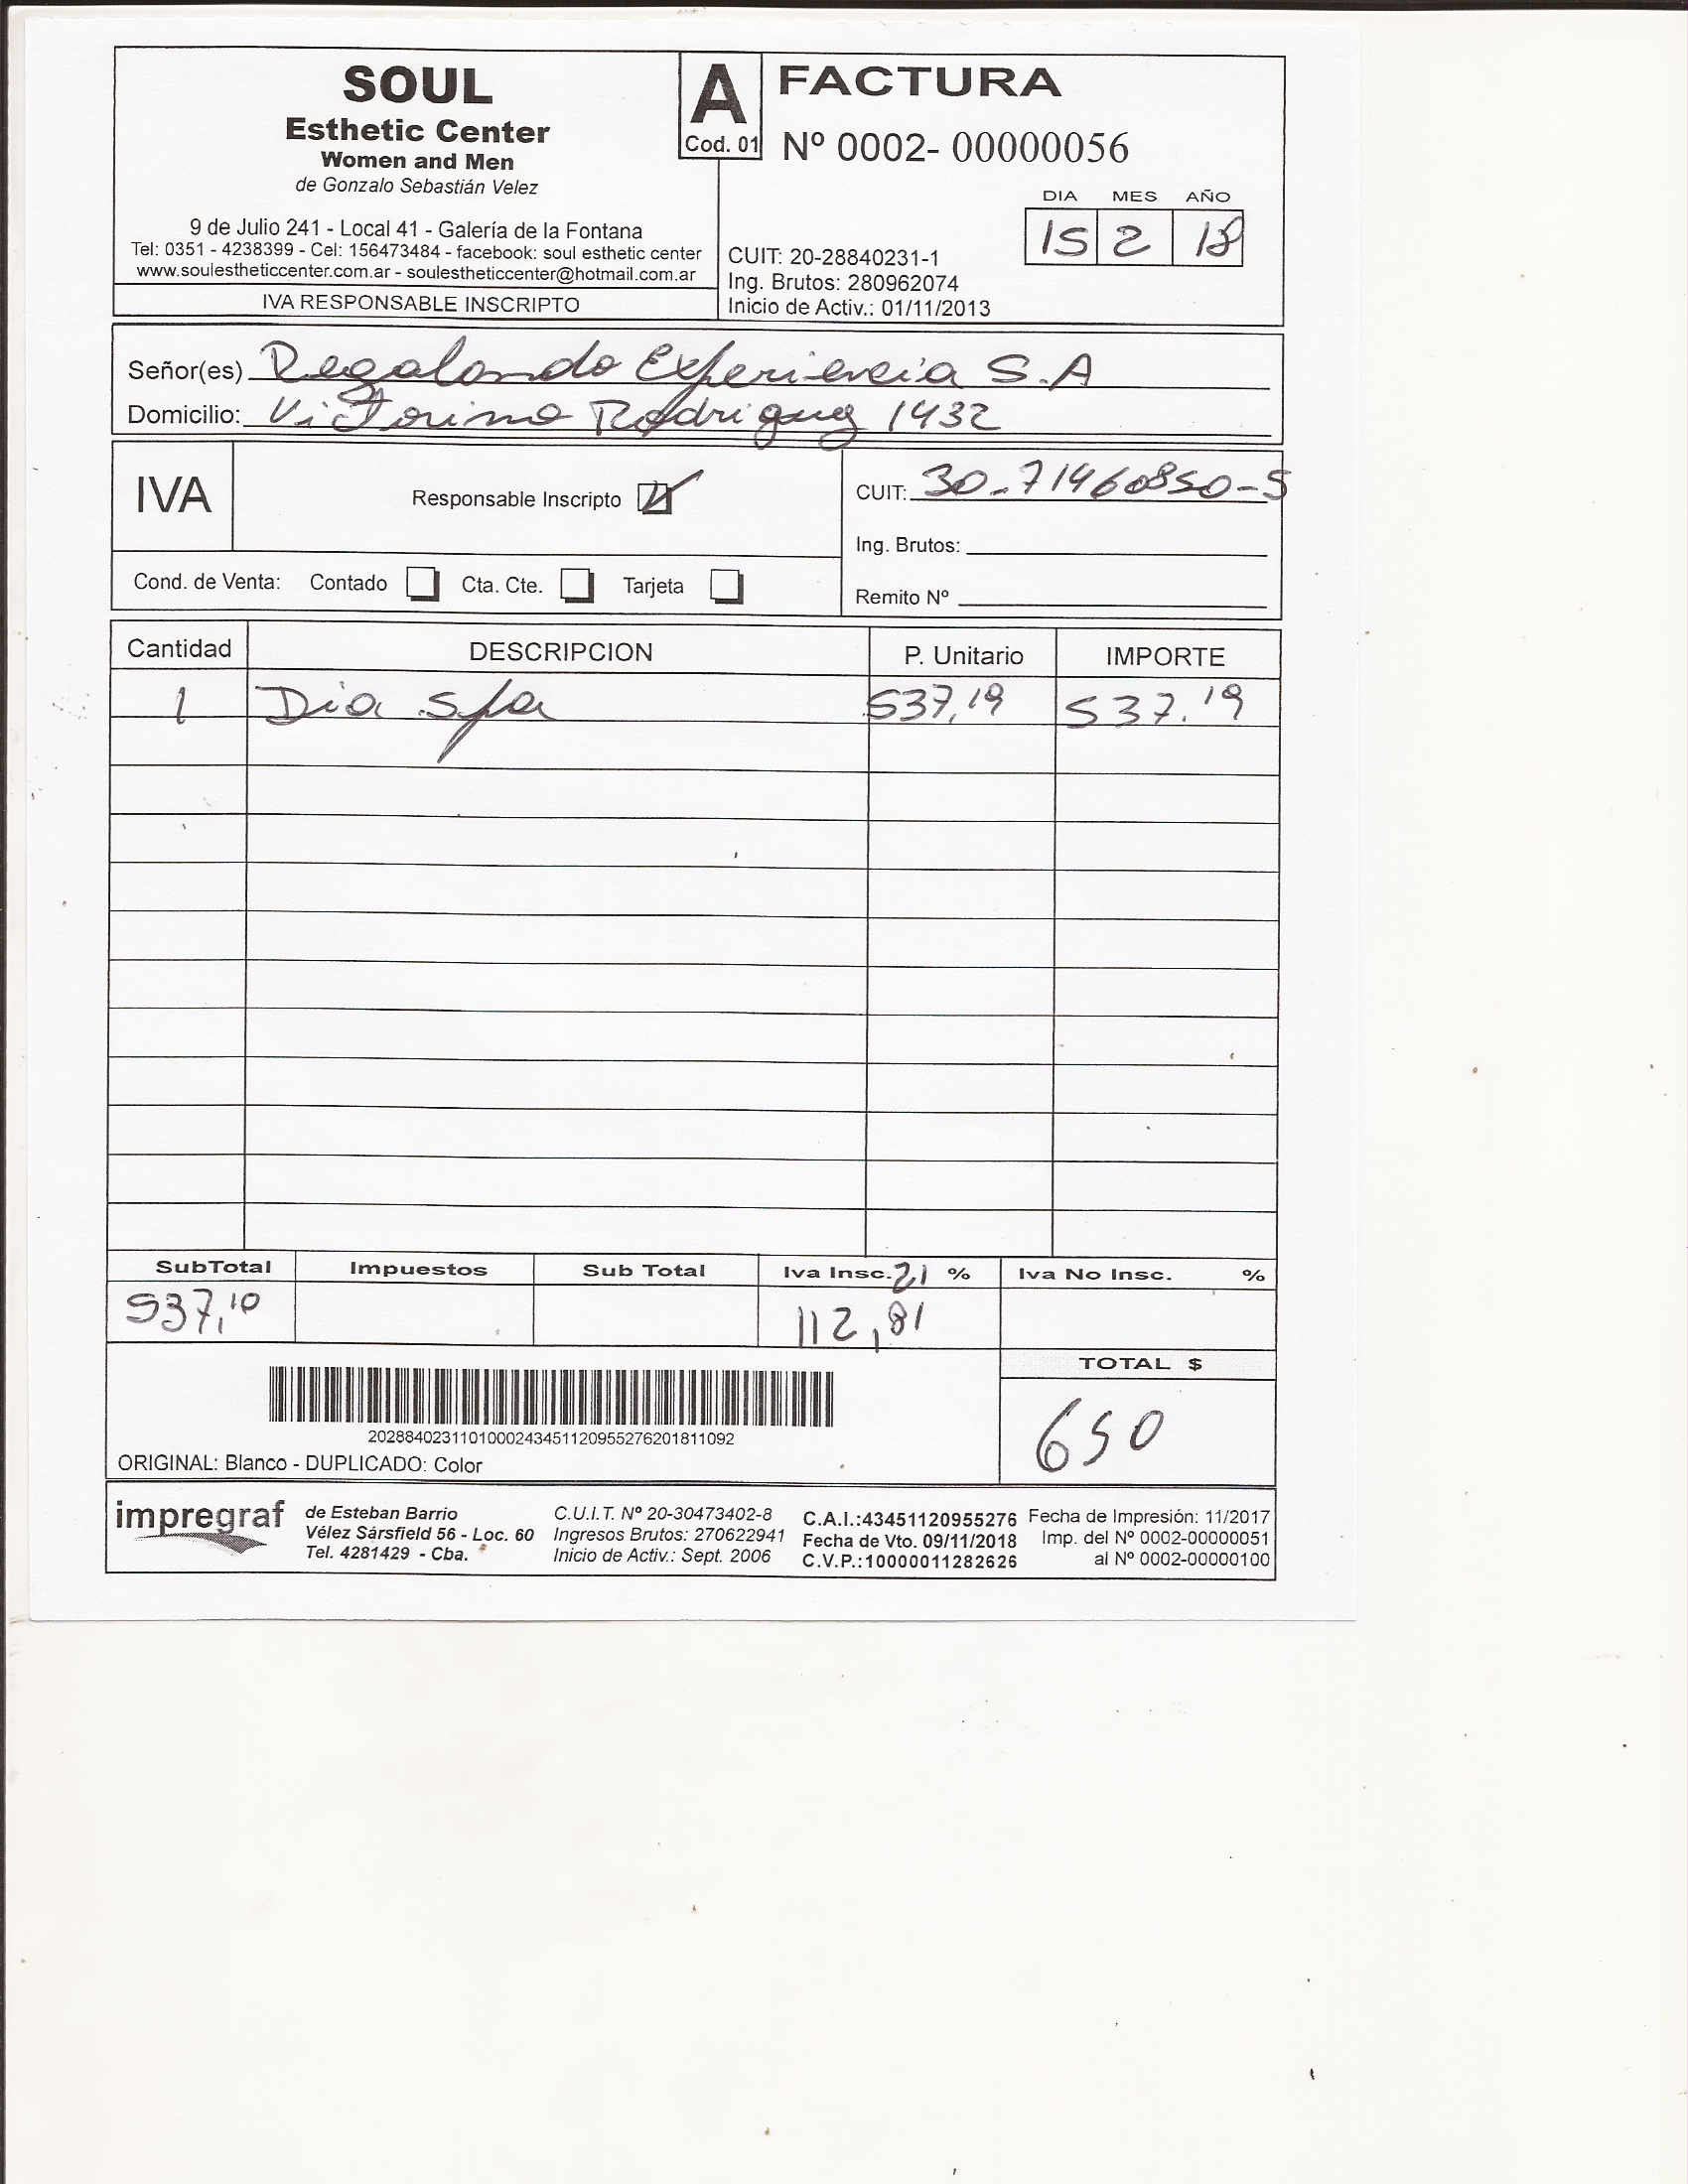 SOUL
Esthetic Center
Women and Men
de Gonzalo Sebastián Velez
9 de Julio 241 - Local 41 - Galería de la Fontana
Tel: 0351 - 4238399 - Cel: 156473484 - facebook: soul esthetic center
www.soulestheticcenter.com.ar - soulestheticcenter@hotmail.com.ar
IVA RESPONSABLE INSCRIPTO
A
Cod. 01
FACTURA
Nº 0002- 00000056
DIA MES AÑO
15 2 18
CUIT: 20-28840231-1
Ing. Brutos: 280962074
Inicio de Activ.: 01/11/2013
Señor(es) Regalando Experiencia S.A
Domicilio: Victorino Rodriguez 1432
IVA Responsable Inscripto
CUIT: 30-71460850-5
Ing. Brutos:
Cond. de Venta: Contado Cta. Cte. Tarjeta
Remito Nº
Cantidad DESCRIPCION P. Unitario IMPORTE
1 Dia spa 537,19 537.19
SubTotal Impuestos Sub Total Iva Insc. 21 % Iva No Insc. %
537,10 112,81
TOTAL $
650
20288402311010002434511209552762018110​92
ORIGINAL: Blanco - DUPLICADO: Color
impregraf
de Esteban Barrio
Vélez Sársfield 56 - Loc. 60
Tel. 4281429 - Cba.
C.U.I.T. Nº 20-30473402-8
Ingresos Brutos: 270622941
Inicio de Activ.: Sept. 2006
C.A.I.:43451120955276
Fecha de Vto. 09/11/2018
C.V.P.:10000011282626
Fecha de Impresión: 11/2017
Imp. del Nº 0002-00000051
al Nº 0002-00000100